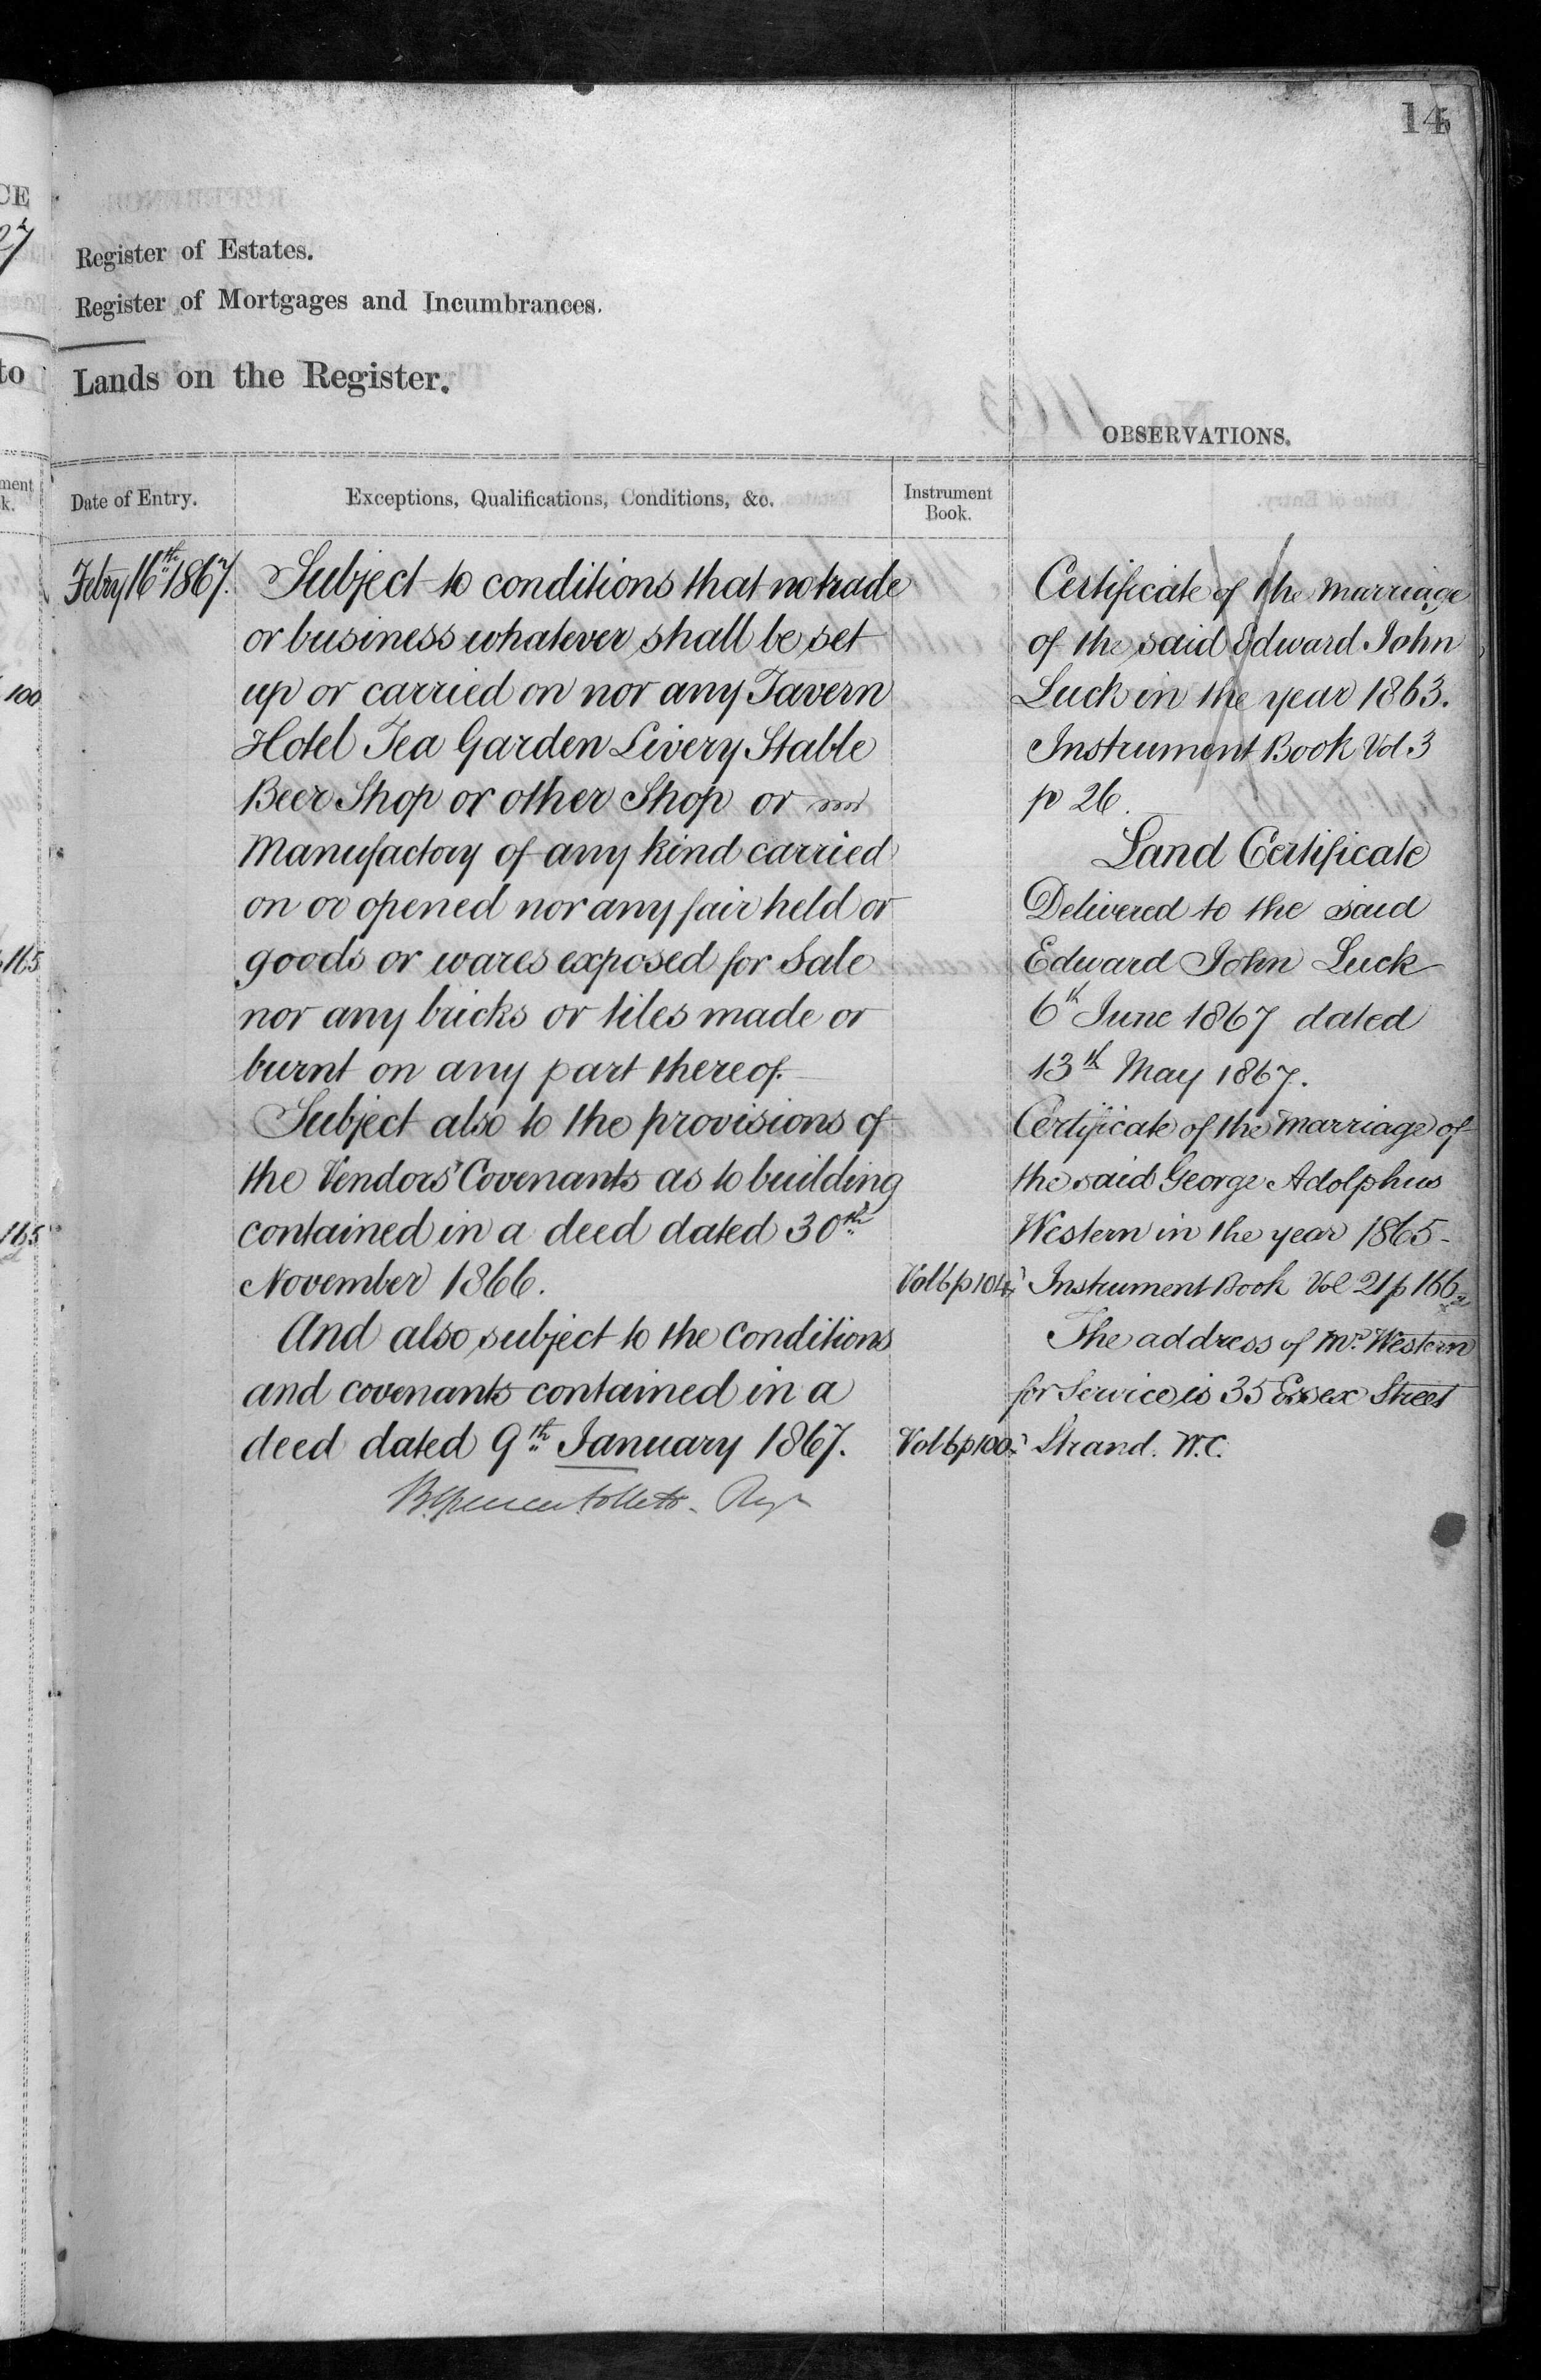 14
CE
27
Register of Estates.
Register of Mortgages and Incumbrances.
to
Lands on the Register.
OBSERVATIONS.
ment
k.
Date of Entry.
Exceptions, Qualifications, Conditions, &c.
Instrument
Book.
Febry 16th 1867.
Subject to conditions that no trade
or business whatever shall be set
up or carried on nor any Tavern
Hotel Tea Garden Livery Stable
Beer Shop or other Shop or
Manufactory of any kind carried
on or opened nor any fair held or
goods or wares exposed for Sale
nor any bricks or tiles made or
burnt on any part thereof.
Subject also to the provisions of
the Vendors' Covenants as to building
contained in a deed dated 30th
November 1866.
Vol 6 p 104
And also subject to the conditions
and covenants contained in a
deed dated 9th January 1867.
Vol 6 p 100
Regr
Certificate of the marriage
of the said Edward John
Luck in the year 1863.
Instrument Book Vol. 3
p 26.
Land Certificate
Delivered to the said
Edward John Luck
6th June 1867 dated
13th May 1867.
Certificate of the marriage of
the said George Adolphus
Western in the year 1865-
Instrument Book Vol 21 p 166
The address of Mr. Western
for Service is 35 Essex Street
Strand. W.C.
100
165
165